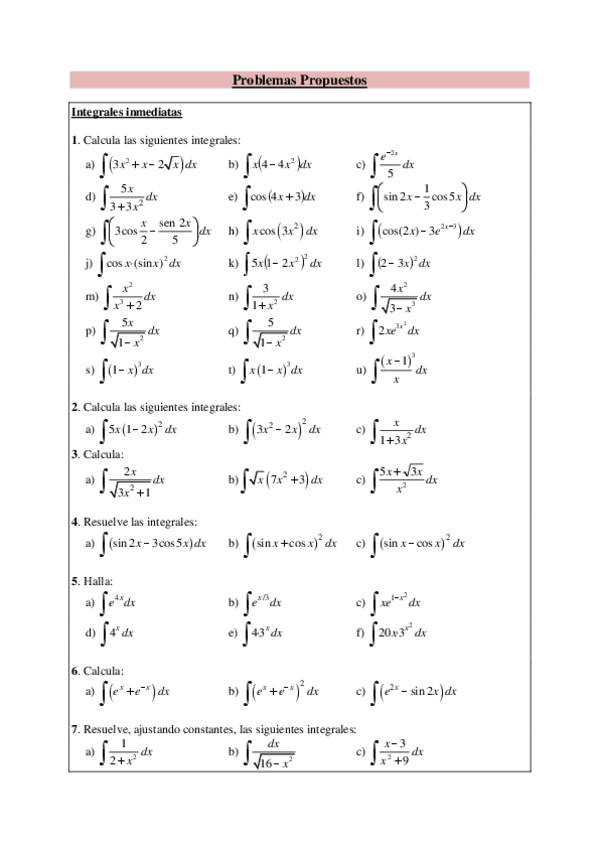 Problemas Propuestos
Integrales inmediatas
1. Calcula las siguientes integrales:
a) ∫(3x² + x − 2√x)dx b) ∫x(4 − 4x²)dx c) ∫e^(−2x)/5 dx
d) ∫5x/(3+3x²) dx e) ∫cos(4x + 3)dx f) ∫(sin 2x − 1/3 cos 5x)dx
g) ∫(3cos x/2 − sen 2x/5)dx h) ∫x cos(3x²)dx i) ∫(cos(2x) − 3e^(2x−3))dx
j) ∫cos x·(sin x)² dx k) ∫5x(1 − 2x²)² dx l) ∫(2 − 3x)² dx
m) ∫x²/(x³ + 2) dx n) ∫3/(1 + x²) dx o) ∫4x²/√(3 − x³) dx
p) ∫5x/√(1 − x²) dx q) ∫5/√(1 − x²) dx r) ∫2xe^(3x²) dx
s) ∫(1 − x)³ dx t) ∫x(1 − x)³ dx u) ∫(x − 1)³/x dx
2. Calcula las siguientes integrales:
a) ∫5x(1 − 2x)² dx b) ∫(3x² − 2x)² dx c) ∫x/(1 + 3x²) dx
3. Calcula:
a) ∫2x/√(3x² + 1) dx b) ∫√x(7x² + 3)dx c) ∫(5x + √3x)/x² dx
4. Resuelve las integrales:
a) ∫(sin 2x − 3cos 5x)dx b) ∫(sin x + cos x)² dx c) ∫(sin x − cos x)² dx
5. Halla:
a) ∫e^(4x) dx b) ∫e^(x/3) dx c) ∫xe^(1−x²) dx
d) ∫4^x dx e) ∫43^x dx f) ∫20x·3^(x²) dx
6. Calcula:
a) ∫(e^x + e^(−x))dx b) ∫(e^x + e^(−x))² dx c) ∫(e^(2x) − sin 2x)dx
7. Resuelve, ajustando constantes, las siguientes integrales:
a) ∫1/(2 + x²) dx b) ∫dx/√(16 − x²) c) ∫(x − 3)/(x² + 9) dx